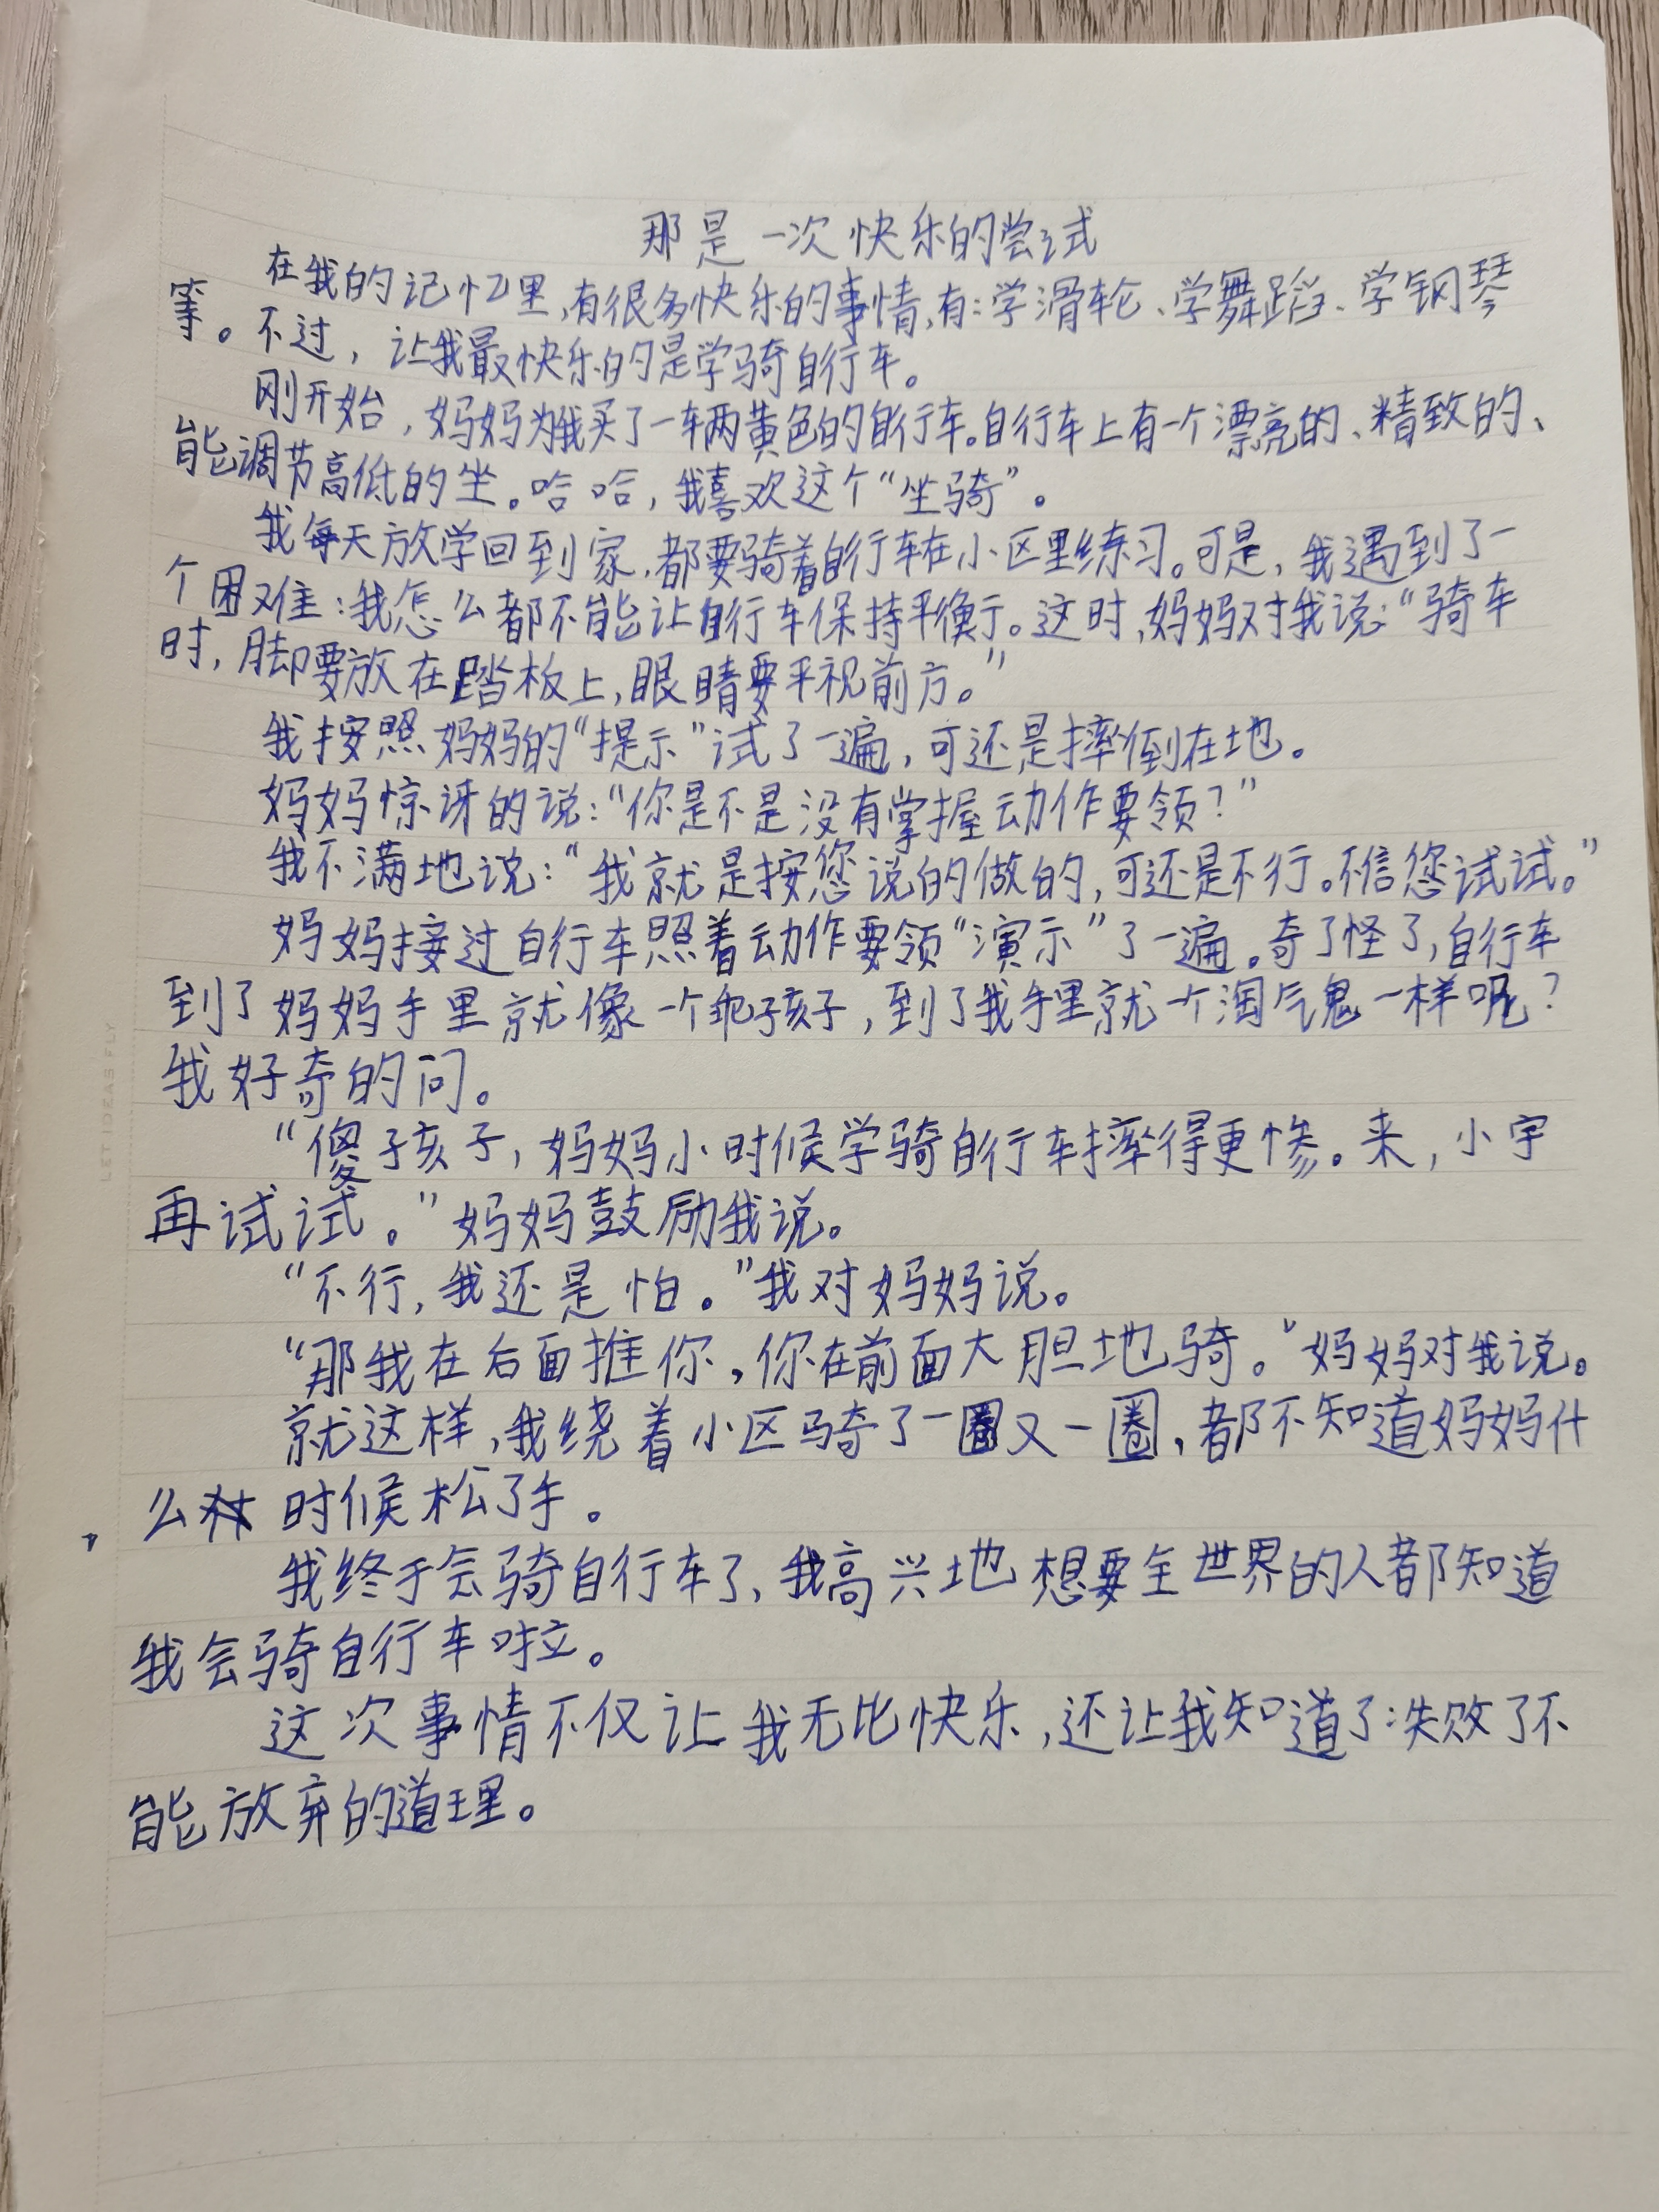 那是一次快乐的尝试
在我的记忆里,有很多快乐的事情,有:学滑轮、学舞蹈、学钢琴
等。不过,让我最快乐的是学骑自行车。
刚开始,妈妈为我买了一辆黄色的自行车。自行车上有一个漂亮的、精致的、
能调节高低的坐。哈哈,我喜欢这个“坐骑”。
我每天放学回到家,都要骑着自行车在小区里练习。可是,我遇到了一
个困难:我怎么都不能让自行车保持平衡。这时,妈妈对我说:“骑车
时,脚要放在踏板上,眼睛要平视前方。”
我按照妈妈的“提示”试了一遍,可还是摔倒在地。
妈妈惊讶的说:“你是不是没有掌握动作要领?”
我不满地说:“我就是按您说的做的,可还是不行。不信您试试。”
妈妈接过自行车照着动作要领“演示”了一遍。奇了怪了,自行车
到了妈妈手里就像一个乖孩子,到了我手里就一个淘气鬼一样呢?
我好奇的问。
“傻孩子,妈妈小时候学骑自行车摔得更惨。来,小宇
再试试。”妈妈鼓励我说。
“不行,我还是怕。”我对妈妈说。
“那我在后面推你,你在前面大胆地骑。”妈妈对我说。
就这样,我绕着小区骑了一圈又一圈,都不知道妈妈什
么时候松了手。
我终于会骑自行车了,我高兴地想要全世界的人都知道
我会骑自行车啦。
这次事情不仅让我无比快乐,还让我知道了:失败了不
能放弃的道理。
LET IDEAS FLY